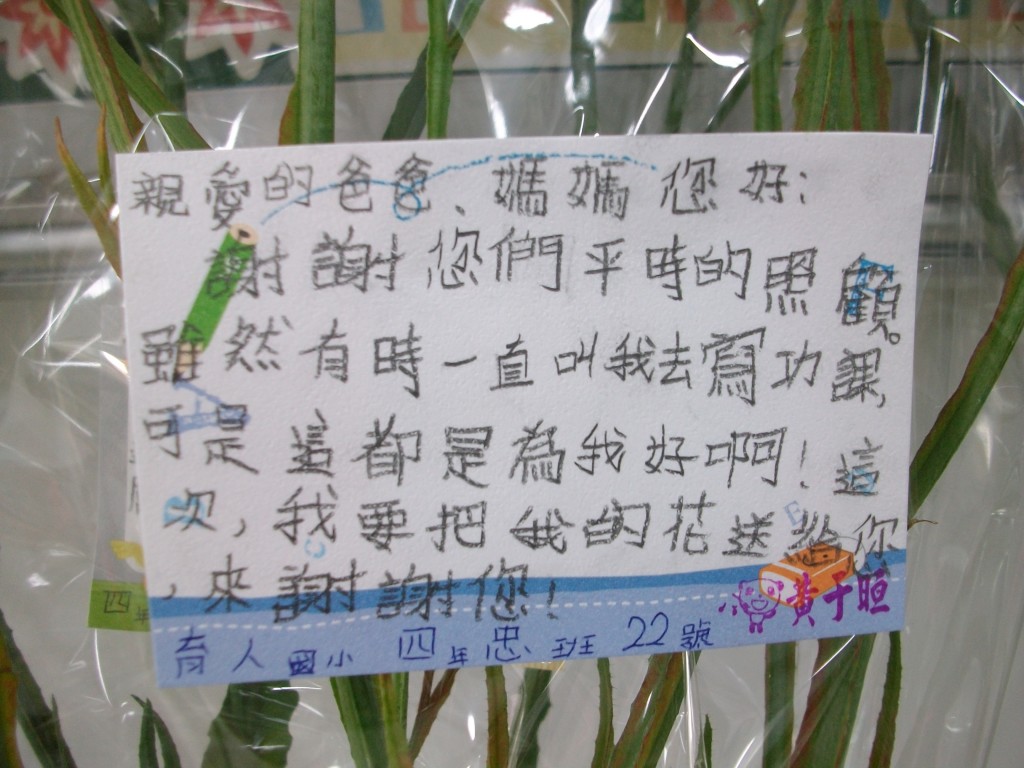 親愛的爸爸、媽媽您好:
謝謝您們平時的照顧。
雖然有時一直叫我去寫功課,
可是這都是為我好啊!這
次,我要把我的花送給你
,來謝謝您!
黃于晅
育人國小 四年忠班 22號
四年